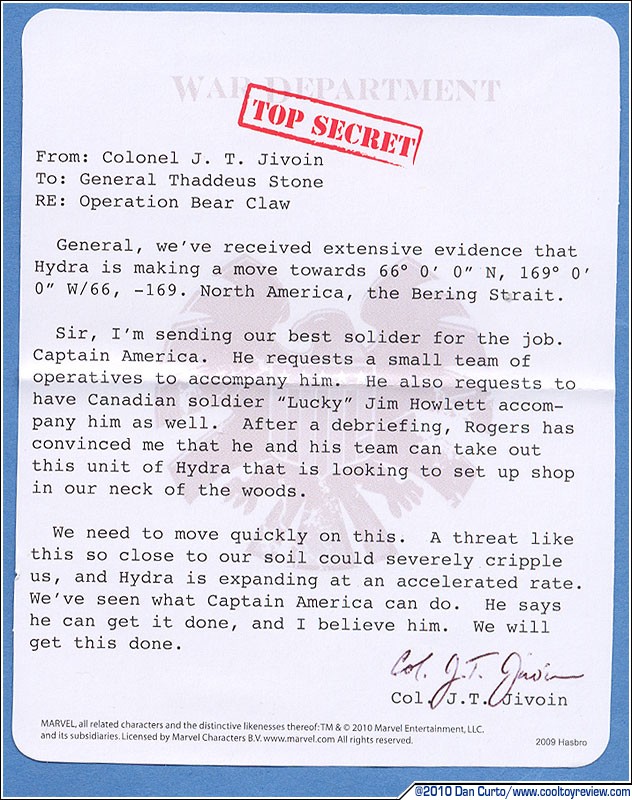 WAR DEPARTMENT
TOP SECRET
From: Colonel J. T. Jivoin
To: General Thaddeus Stone
RE: Operation Bear Claw
General, we've received extensive evidence that
Hydra is making a move towards 66° 0′ 0″ N, 169° 0′
0″ W/66, -169. North America, the Bering Strait.
Sir, I'm sending our best solider for the job.
Captain America.  He requests a small team of
operatives to accompany him.  He also requests to
have Canadian soldier "Lucky" Jim Howlett accom-
pany him as well.  After a debriefing, Rogers has
convinced me that he and his team can take out
this unit of Hydra that is looking to set up shop
in our neck of the woods.
We need to move quickly on this.  A threat like
this so close to our soil could severely cripple
us, and Hydra is expanding at an accelerated rate.
We've seen what Captain America can do.  He says
he can get it done, and I believe him.  We will
get this done.
Col. J.T. Jivoin
Col. J.T. Jivoin
MARVEL, all related characters and the distinctive likenesses thereof: TM & © 2010 Marvel Entertainment, LLC.
and its subsidiaries. Licensed by Marvel Characters B.V. www.marvel.com All rights reserved.
2009 Hasbro
©2010 Dan Curto/www.cooltoyreview.com